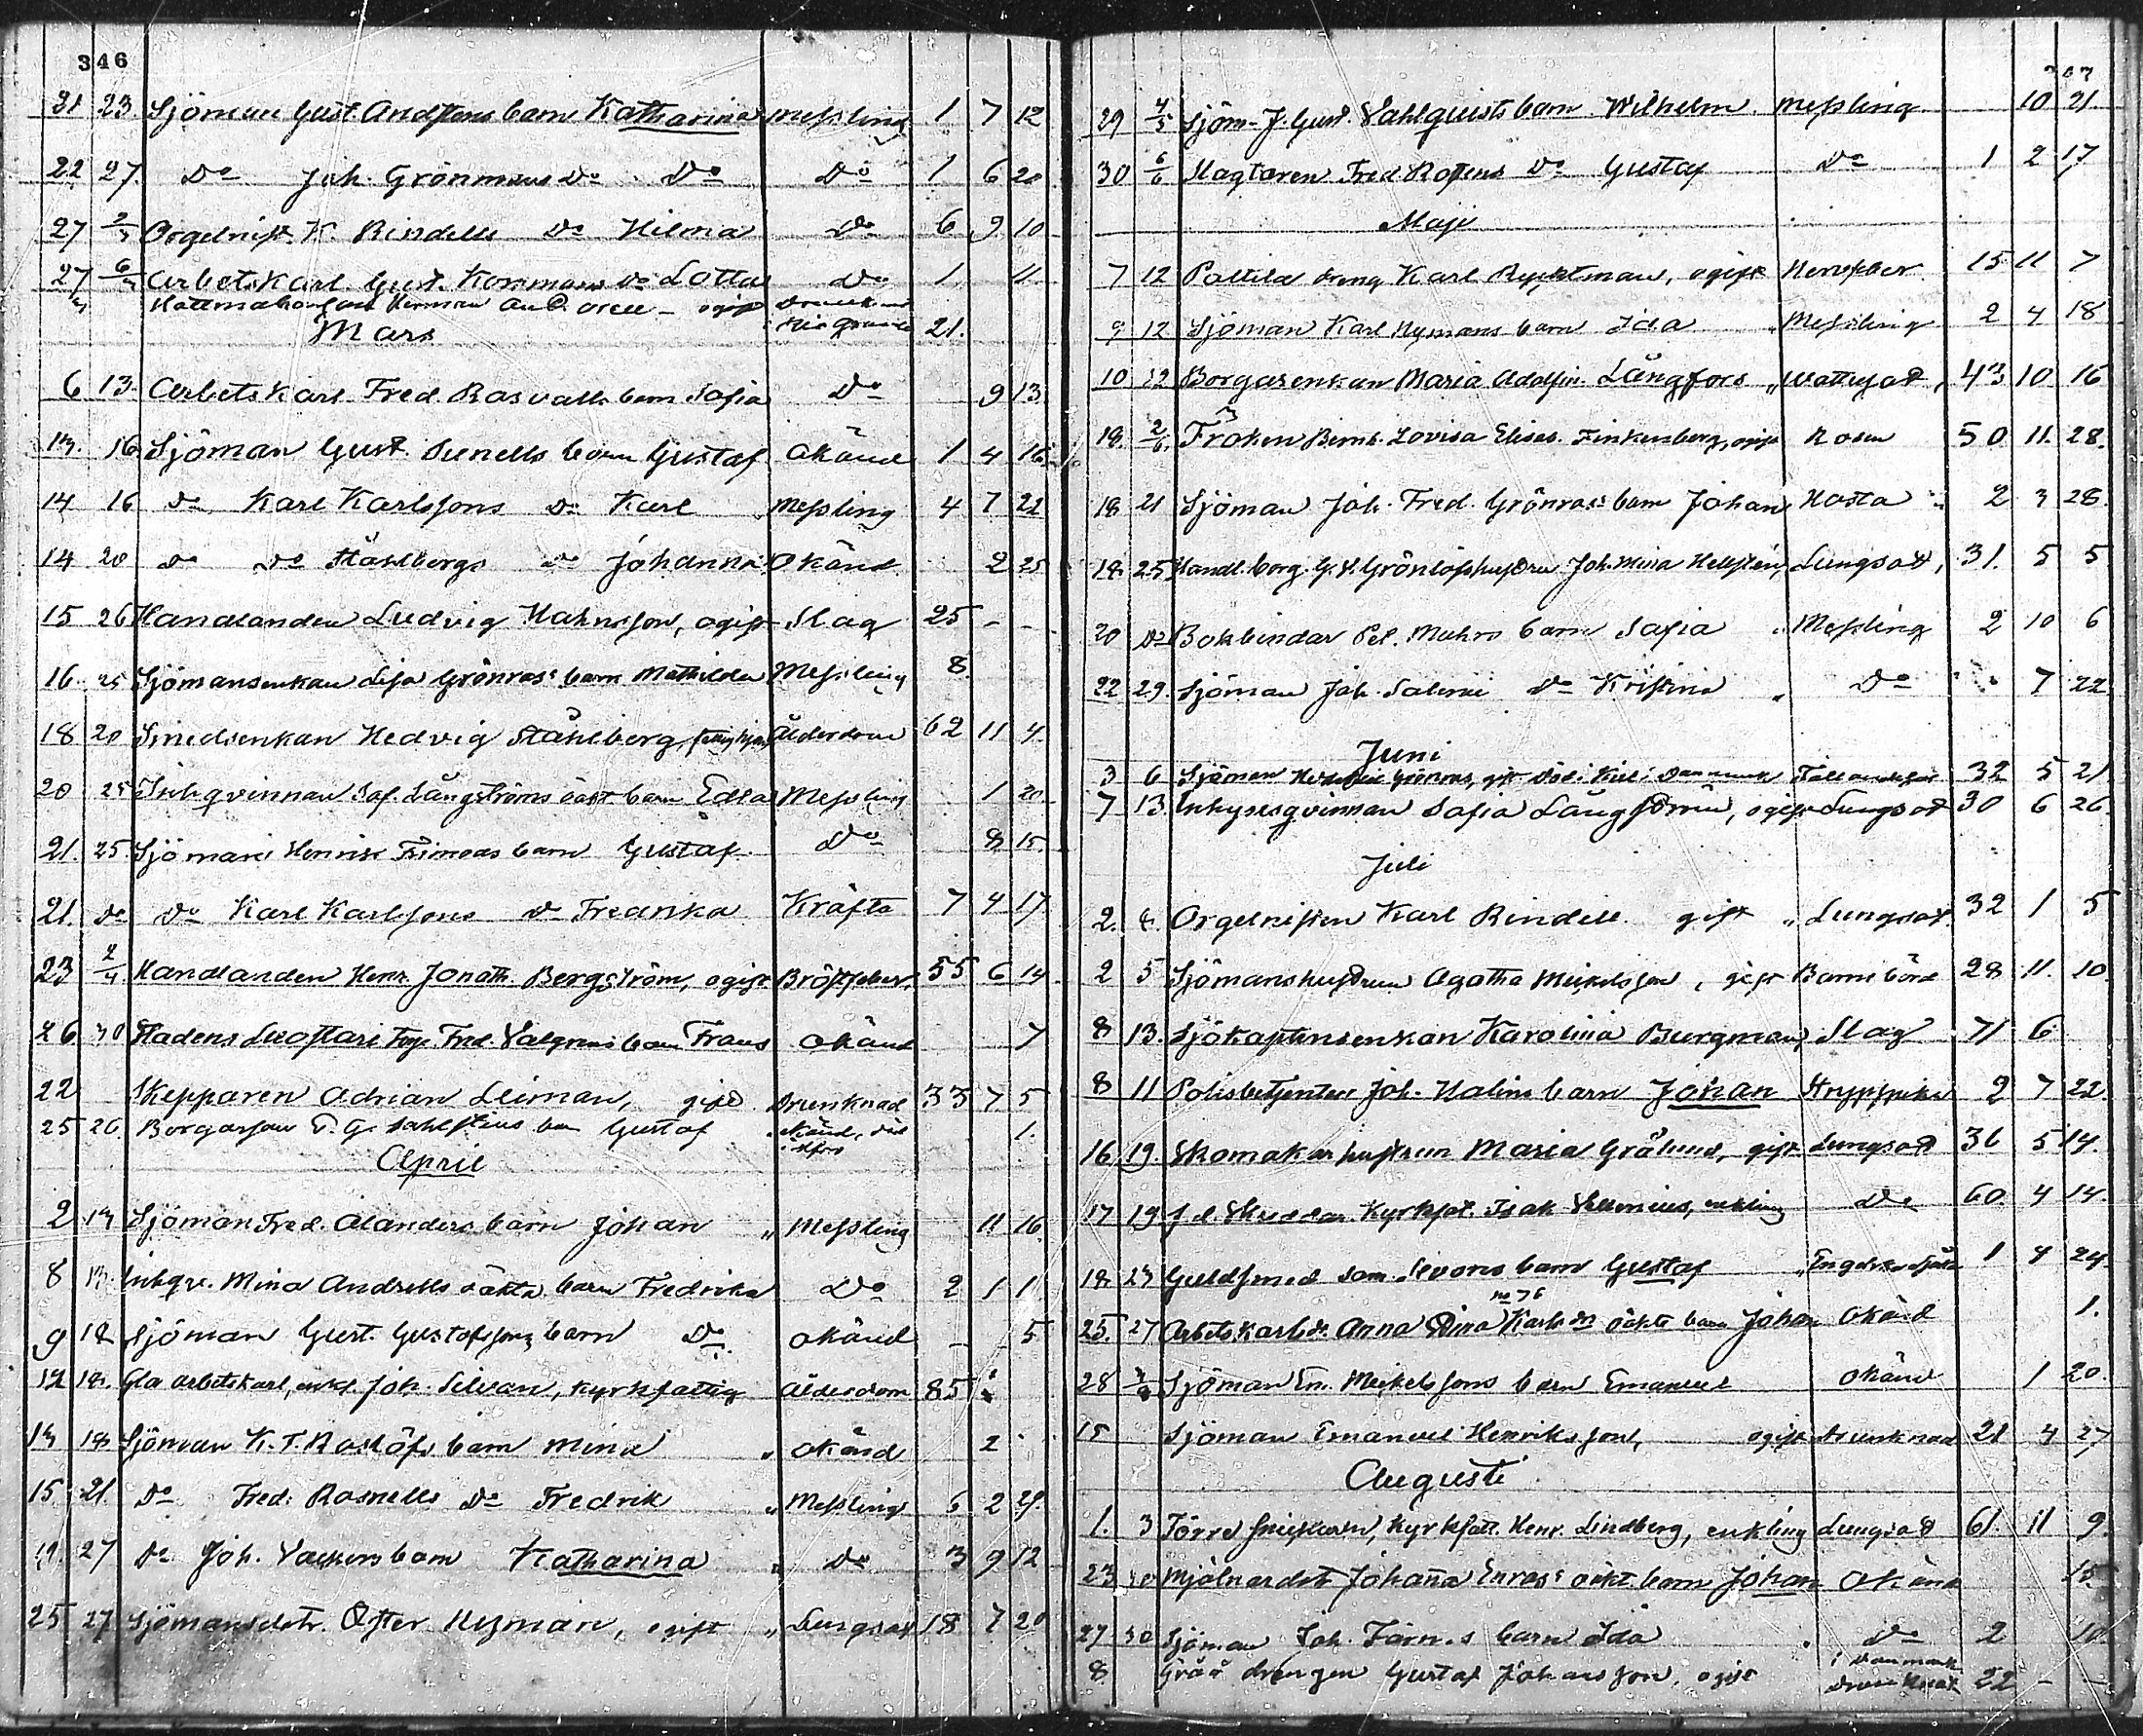 346
21 23. Sjöman Gust. Andssons barn Katharina Messling 1 7 12
22 27. Do Joh. Grönmans Do Do Do 1 6 20
27 2/3 Orgelnist. K. Rindells Do Hilma Do 6 9 10
27 6/3 Arbetskarl Gust. Kornmans Do Lotta Do 1 11
Herman ogift 21.
Mars
6 13. Arbetskarl Fred. Rosvalls barn Sofia Do 9 13
13. 16 Sjöman Gust. Sunells barn Gustaf okänd 1 4 16
14 16 Do Karl Karlssons Do Karl Messling 4 7 22
14 20 Do Do Ståhlbergs Do Johanna Okänd 2 25
15 26 Handlanden Ludvig Hahnsson, ogift Slag 25 - -
16. 25 Sjömansenkan Lisa Grönroos' barn Mathilda Messling 8.
18 20 Smedsenkan Hedvig Ståhlberg, Ålderdom 62 11 4.
20 25 Inhqvinnan Sof. Långströms oäkt barn Edla Messling 1 20
21. 25 Sjöman Henrik barn Gustaf Do 8 15.
21. Do Do Karl Karlssons Do Fredrika Kräfta 7 4 17
23 2/4 Handlanden Henr. Jonath. Bergström, ogift Bröstfeber. 55 6 14
26 30 Stadens Fred. barn Frans okänd 7
22 Skepparen Adrian Leiman, gift Drunknad 33 7 5
25 26. Borgaren barn Gustaf 1.
April
2 13 Sjöman Fred. Alanders barn Johan " Messling 11 16
8 13. Inhqv. Mina Andrells oäkta barn Fredrika Do 2 1 1
9 12 Sjöman Gust. Gustafssons barn Do okänd - 5
12 18. Gla arbetskarl, enkl. Joh. Silvan, kyrkfattig Ålderdom 85
13 18 Sjöman K. F. Roslöfs barn Mina " okänd 2
15 21. Do Fred. Rosnells Do Fredrik " Messling 6 2 21.
19. 27 Do Joh. barn Katharina " Do 3 9 12
25 27 Sjömansdotr. Ester Nyman, ogift " Lungsot 18 7 20
29 4/5 Sjöm. J. Gust. Dahlquists barn Wilhelm Messling 10 21
30 6/6 Fred. Rosens Do Gustaf Do 1 2 17
Maji
7 12 Pattila dreng Karl, ogift 15 11 7
9 12 Sjöman Karl Nymans barn Ida " Messling 2 4 18
10 12 Borgarenkan Maria Adolfin. Långfors " Wattusot, 43 10 16
18. 2/6 Fröken Lovisa Elisab. Finkenberg, ogift Rosen 50 11. 28.
18 21 Sjöman Joh. Fred. Grönroos' barn Johan Hosta 2 3 28.
18. 25 Handl. borg. G. Grönlöfs hustru Joh. Mina Hellstén, Lungsot, 31. 5 5
20 Do Bokbindar Pet. barn Sofia " Messling 2 10 6
22 29. Sjöman Joh. Do Kristina " Do 7 22
Juni
3 6 Sjöman Grönroos, gift död i Kiel i Danmark 32 5 21
7 13. Inhysesqvinnan Sofia Långström, ogift Lungsot 30 6 26.
Juli
2. 8. Orgelnisten Karl Rindell gift " Lungsot. 32 1 5
2 5 Sjömanshustrun Agatha Mickelsson, gift Barnsbörd 28 11. 10
8 13. Sjökaptensenkan Karolina Burgman, Slag 71 6
8 11 Polisbetjenten Joh. Malins barn Johan Strypsjuka 2 7 22.
16 19. Skomakarhustrun Maria Grålund, gift Lungsot 36 5 14.
17 19 f. d. Skräddar. Kyrkfat. Isak, enkling Do 60. 4 14.
18 23 Guldsmed Sam. barn Gustaf " Engelska sjukan 1 4 24.
no 76
25. 27 Arbetskarlsdr. Anna Dina Karlsdr oäkta barn Johan Okänd 1.
28 Sjöman Em. Mickelssons barn Emanuel Okänd 1 20.
15 Sjöman Emanuel Henriksson, ogift Drunknad 21 4 27
Augusti
1. 3 Kyrkfatt. Henr. Lindberg, enkling Lungsot 61. 11 9.
23 30 Mjölnardotr Johanna Enroos' oäkt. barn Johan Okänd 15.
27 30 Sjöman Joh. barn Ida " Do 2 10.
8. drengen Gustaf Johansson, ogift i Danmark drunknat 22 - -